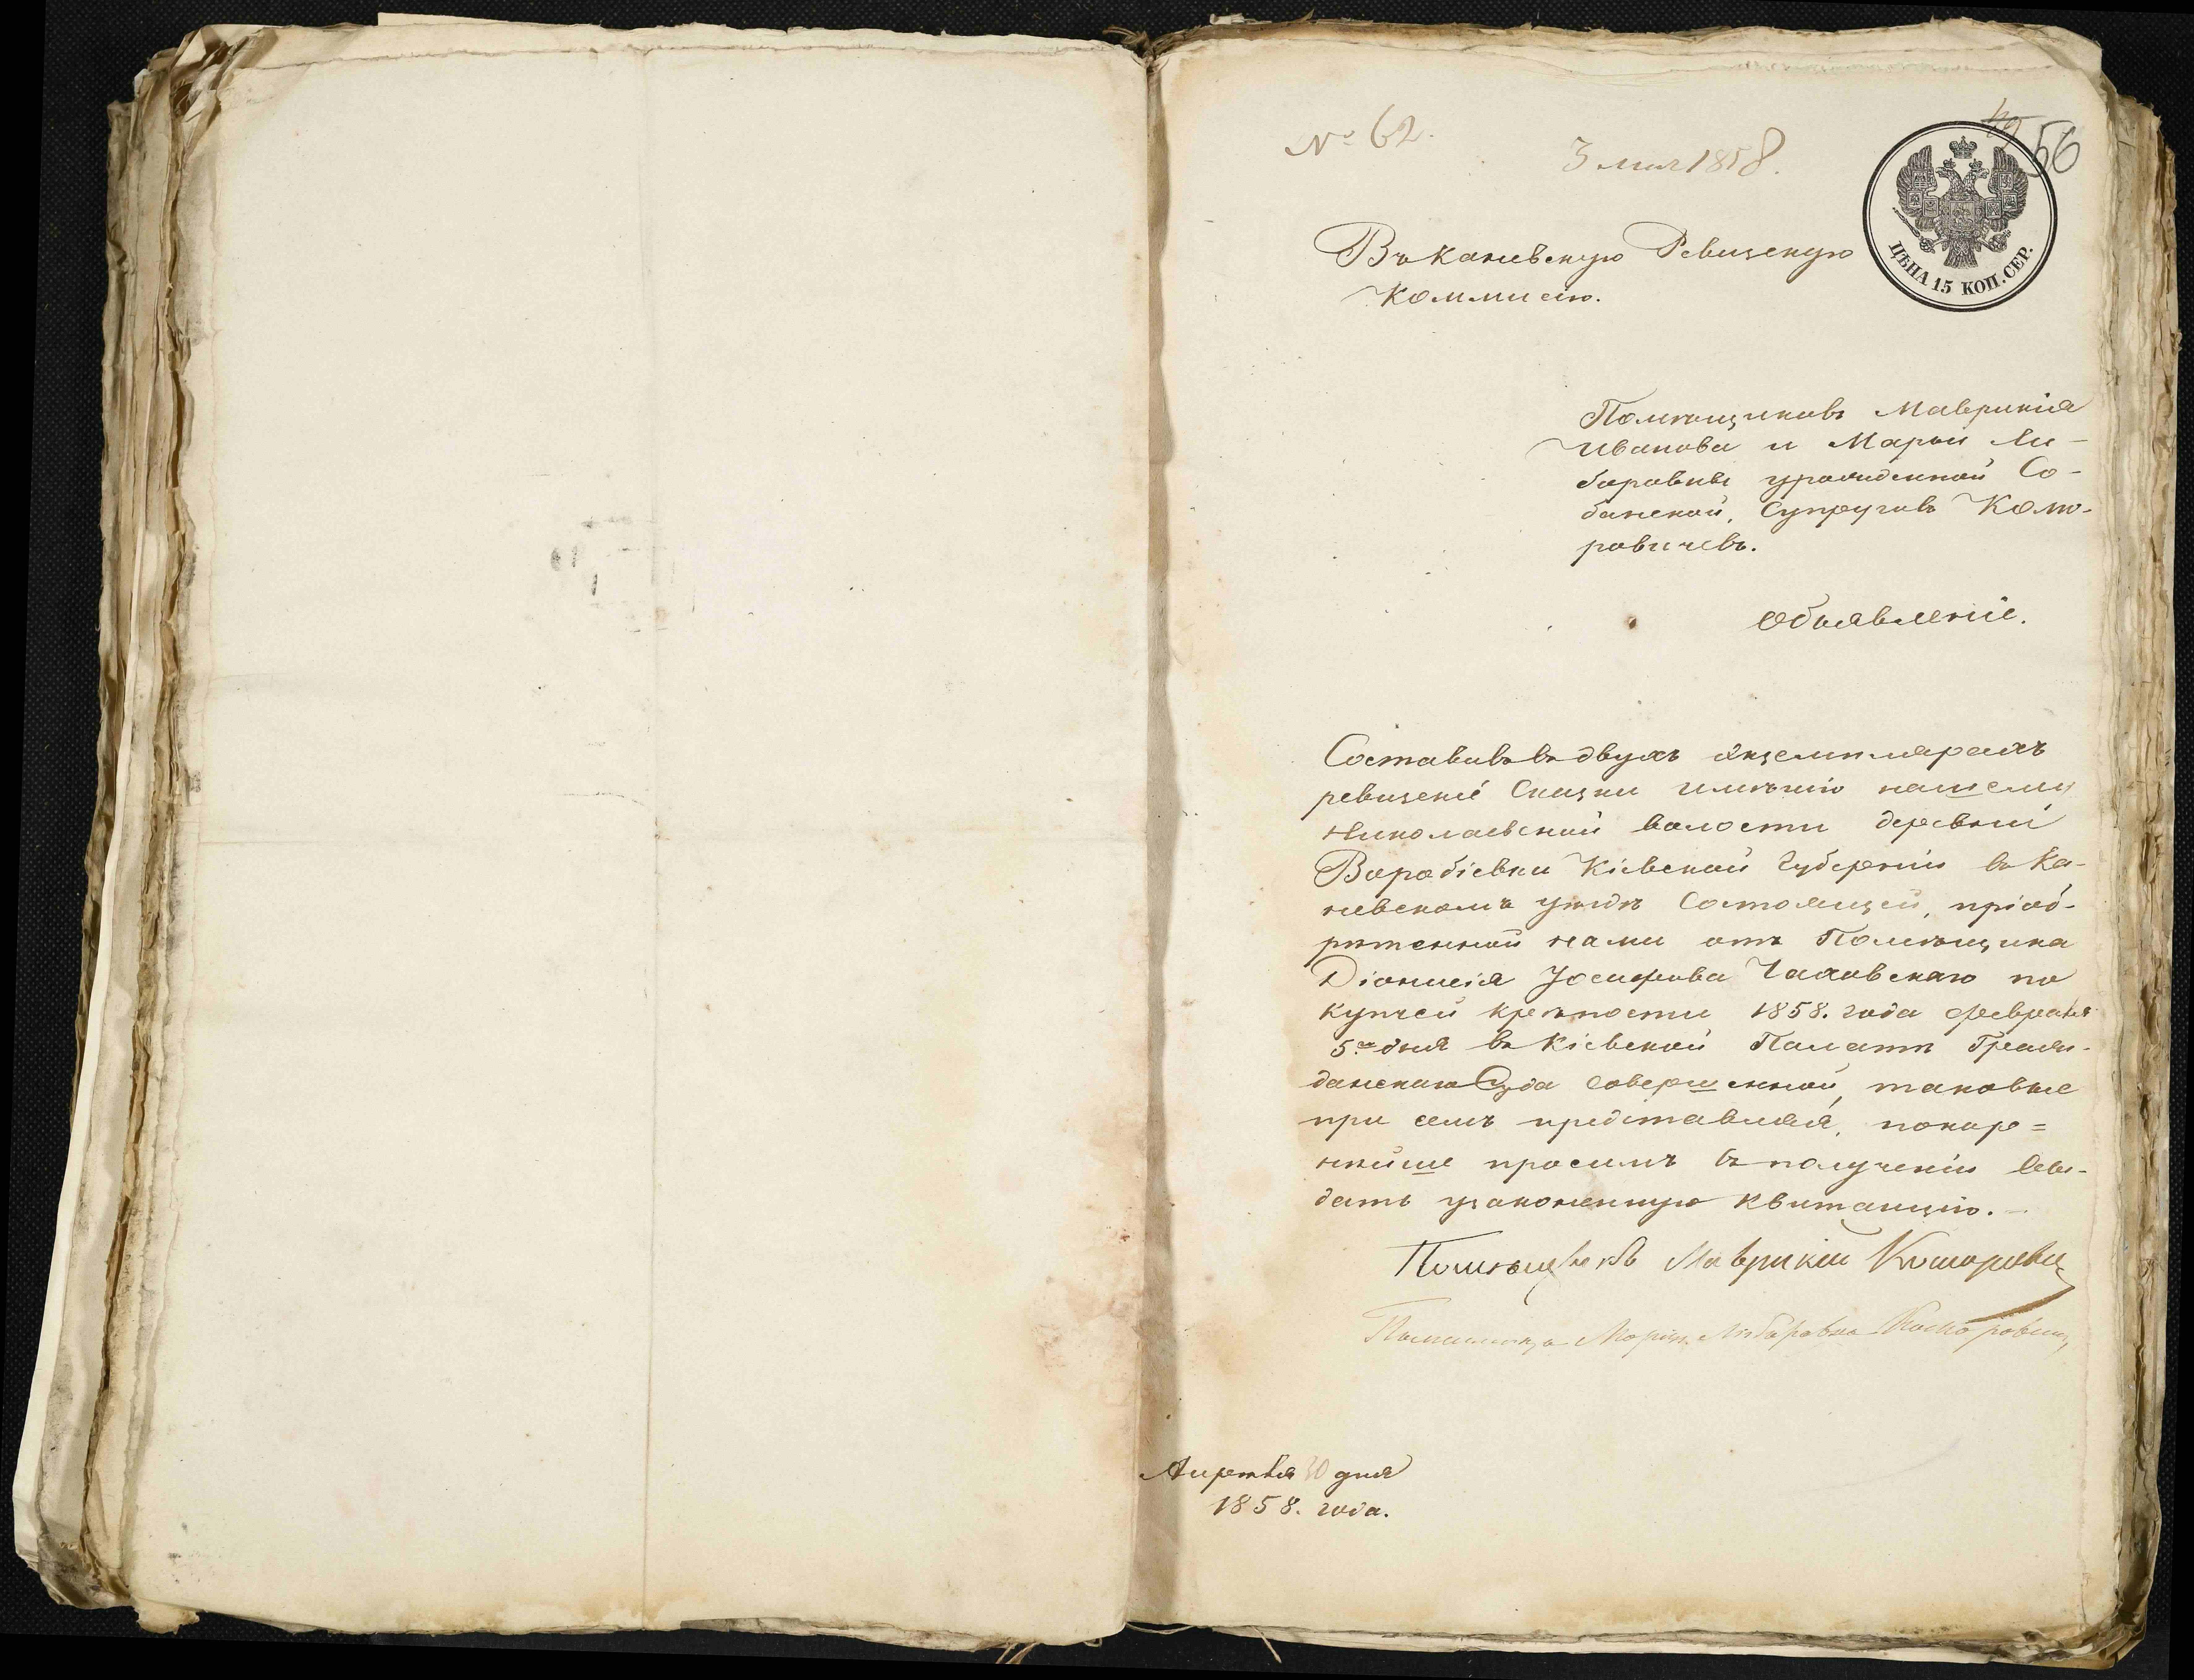 № 62.
3 мая 1858.
56
ЦѢНА 15 КОП. СЕР.
Въ Каневскую Ревизскую
Коммисію.
Помѣщиковъ Маврикія
Иванова и Маріи Ли-
боровны урожденной Со-
банской, Супруговъ Комо-
ровичевъ.
Объявленіе.
Составивъ въ двухъ экземплярахъ
ревизскіе Сказки имѣнію нашему
Николаевской волости деревни
Воробіевки Кіевской Губерніи въ Ка-
невскомъ уѣздѣ Состоящей, пріоб-
рѣтенной нами отъ Помѣщика
Діонисія Іосифова Чаховскаго по
купчей крѣпости 1858. года февраля
5го дня въ Кіевской Палатѣ Граж-
данскаго Суда совершенной, таковые
при семъ представляя, покор=
нѣйше просимъ въ полученіи вы-
дать узаконенную квитанцію.
Помѣщикъ Маврикій Коморович
Помѣщица Марія Либоровна Коморович
Апрѣля 30 дня
1858. года.